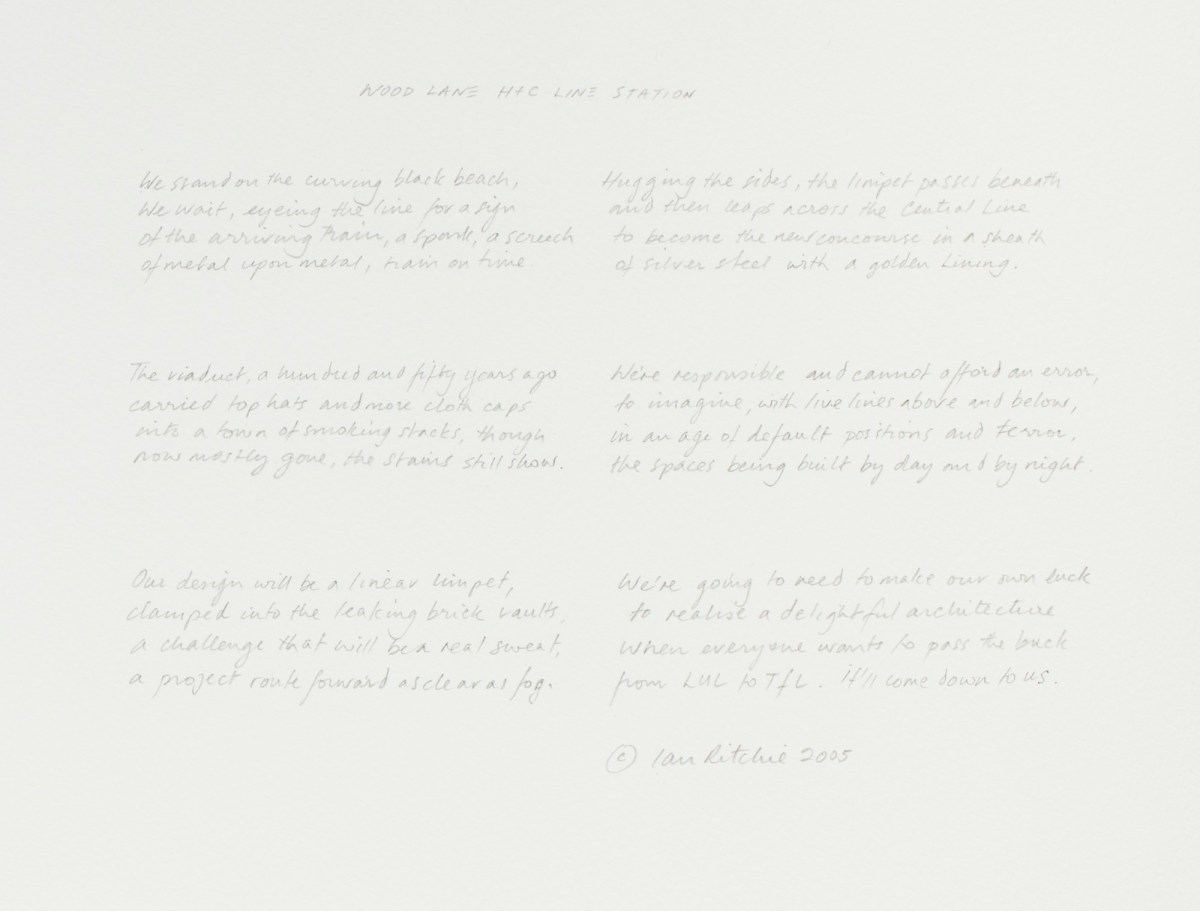 WOOD LANE H+C LINE STATION
We stand on the curving black beach,
We wait, eyeing the line for a sign
of the arriving train, a spark, a screech
of metal upon metal, train on time
The viaduct, a hundred and fifty years ago
carried top hats and more cloth caps
into a town of smoking stacks, though
now mostly gone, the stains still show.
Our design will be a linear limpet,
clamped into the leaking brick vaults,
a challenge that will be a real sweat,
a project route forward as clear as fog.
Hugging the sides, the limpet passes beneath
and then leaps across the Central Line
to become the new concourse in a sheath
of silver steel with a golden lining.
We're responsible and cannot afford an error,
to imagine, with live lines above and below,
in an age of default positions and terror,
the spaces being built by day and by night.
We're going to need to make our own luck
to realise a delightful architecture
when everyone wants to pass the buck
from LUL to TfL. It'll come down to us.
© Ian Ritchie 2005